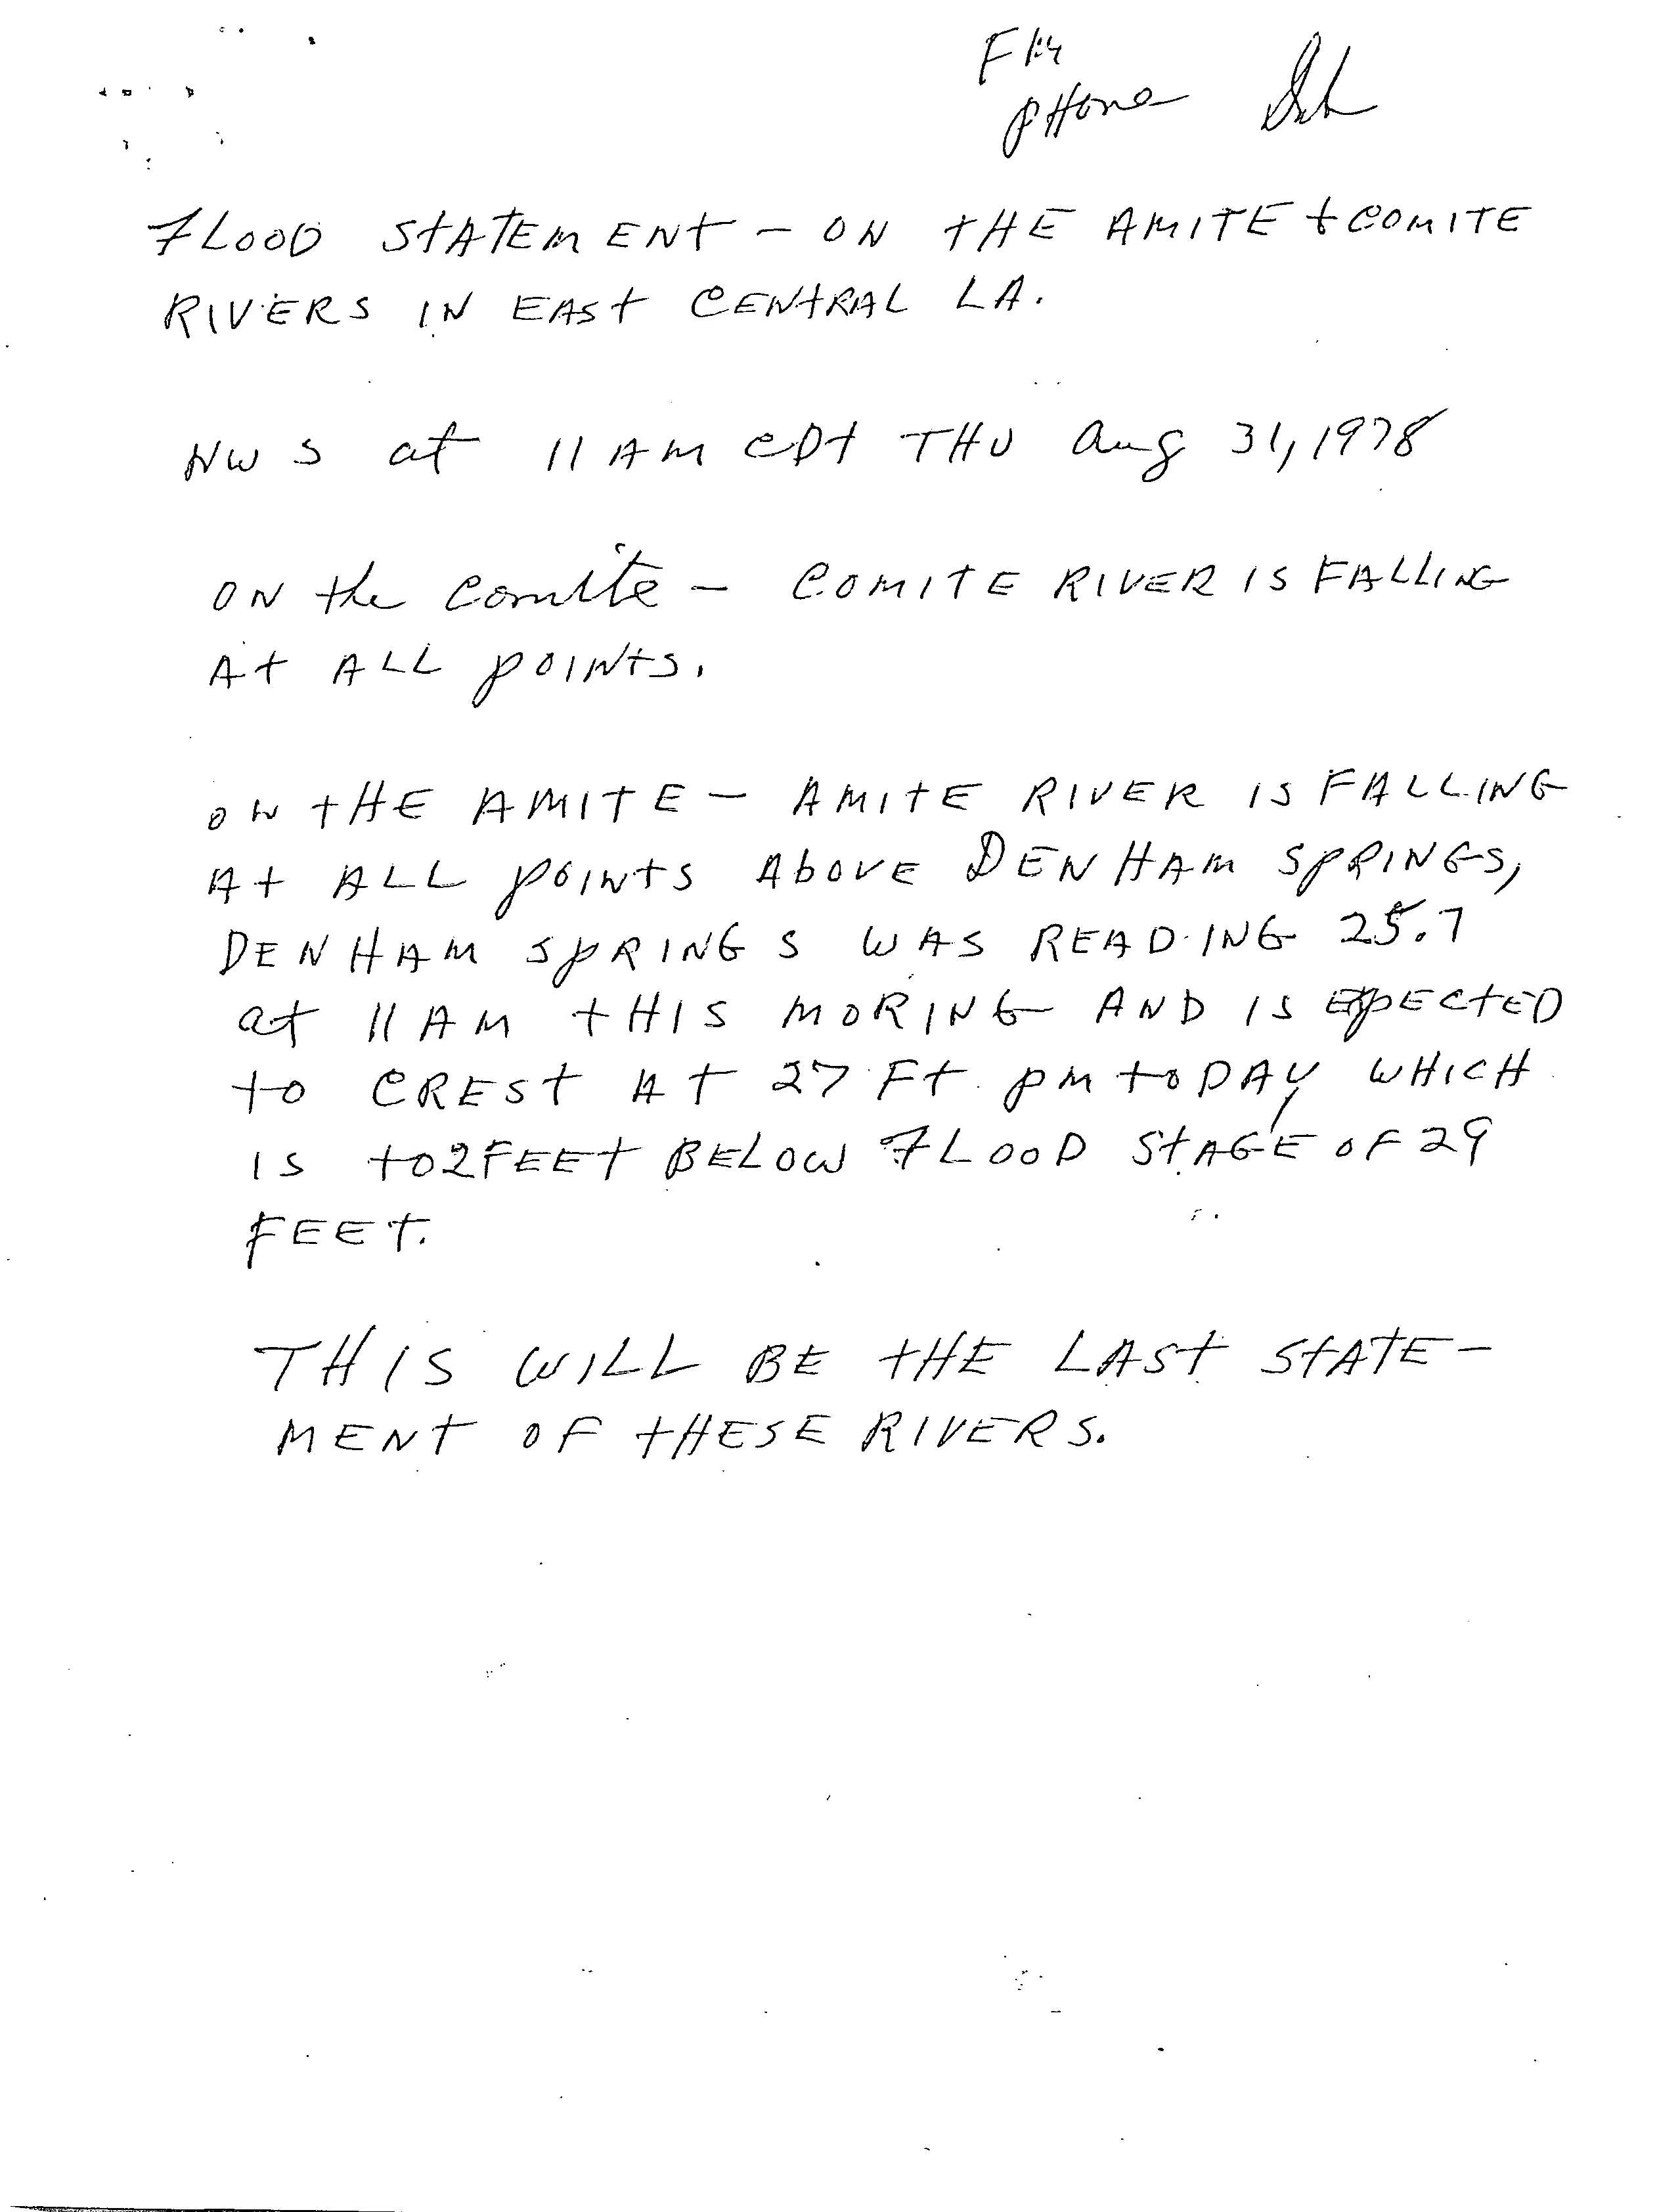 PHone
FLOOD STATEMENT - ON THE AMITE + COMITE
RIVERS IN EAST CENTRAL LA.
NWS at 11 AM CDT THU Aug 31, 1978
ON the Comite - COMITE RIVER IS FALLING
AT ALL POINTS.
ON THE AMITE - AMITE RIVER IS FALLING
AT ALL POINTS ABOVE DENHAM SPRINGS,
DENHAM SPRINGS WAS READING 25.7
at 11 AM THIS MORING AND IS EXPECTED
TO CREST AT 27 FT. PM TODAY WHICH
IS TO 2 FEET BELOW FLOOD STAGE OF 29
FEET.
THIS WILL BE THE LAST STATE-
MENT OF THESE RIVERS.